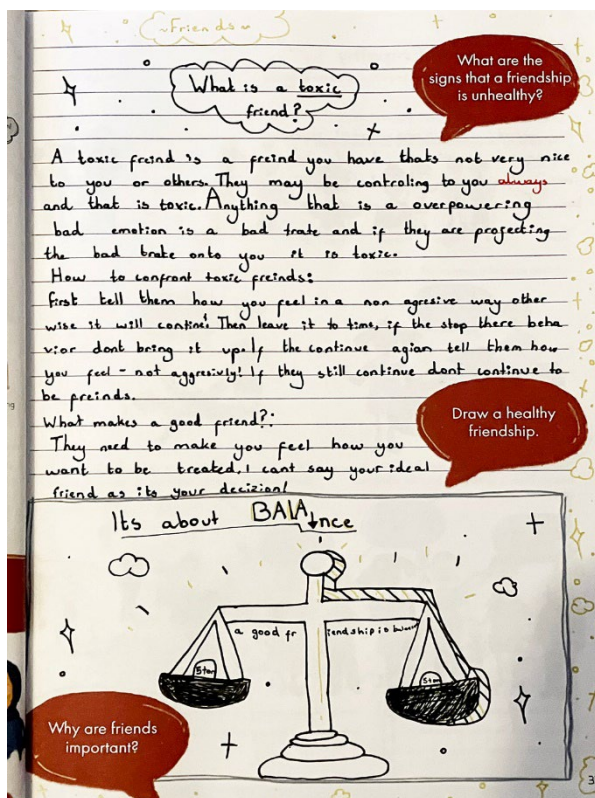 ~Friends~
What is a toxic
friend?
What are the
signs that a friendship
is unhealthy?
A toxic freind is a freind you have thats not very nice
to you or others. They may be controling to you always
and that is toxic. Anything that is a overpowering
bad emotion is a bad trate and if they are projecting
the bad trake onto you it is toxic.
How to confront toxic freinds:
first tell them how you feel in a non agresive way other
wise it will contine! Then leave it to time, if the stop there beha
vior dont bring it up. If the continue agian tell them how
you feel - not aggresivly! If they still continue dont continue to
be freinds.
What makes a good friend?:
They need to make you feel how you
want to be treated. I cant say your ideal
friend as its your decizion!
Draw a healthy
friendship.
Its about BALAnce
a good friendship is
Why are friends
important?
3